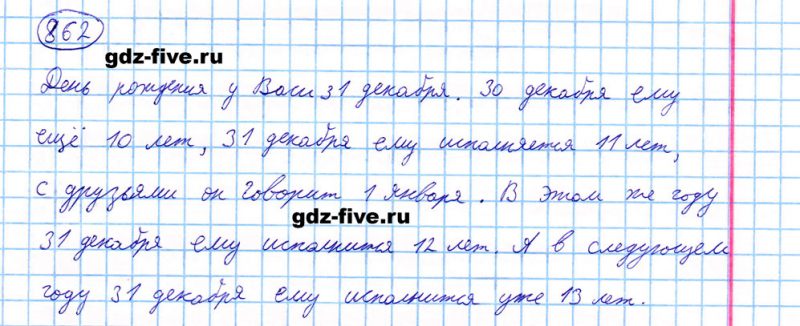 862
gdz-five.ru
День рождения у Васи 31 декабря. 30 декабря ему
ещё 10 лет, 31 декабря ему исполняется 11 лет,
с друзьями он говорит 1 января. В этом же году
gdz-five.ru
31 декабря ему исполнится 12 лет. А в следующем
году 31 декабря ему исполнится уже 13 лет.